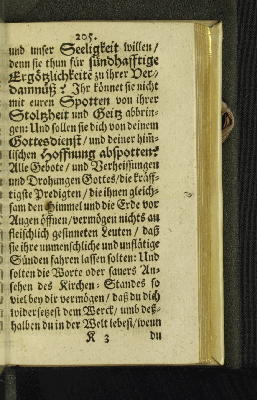 205.
und unser Seeligkeit willen/
denn sie thun für sündhafftige
Ergötzlichkeite zu ihrer Ver-
damnüß? Ihr könnet sie nicht
mit euren Spotten von ihrer
Stoltzheit und Geitz abbrin-
gen: Und sollen sie dich von deinem
Gottesdienst/ und deiner him̄-
lischen Hoffnung abspotten?
Alle Gebote/ und Verheissungen
und Drohungen Gottes/ die kräff-
tigste Predigten/ die ihnen gleich-
sam den Himmel und die Erde vor
Augen öffnen/ vermögen nichts an
fleischlich gesinneten Leuten/ daß
sie ihre unmenschliche und unflätige
Sünden fahren lassen solten: Und
solten die Worte oder sauers An-
sehen des Kirchen-Standes so
viel bey dir vermögen/ daß du dich
widersetzest dem Werck/ umb deß-
halben du in der Welt lebest/ wenn
K 3 du